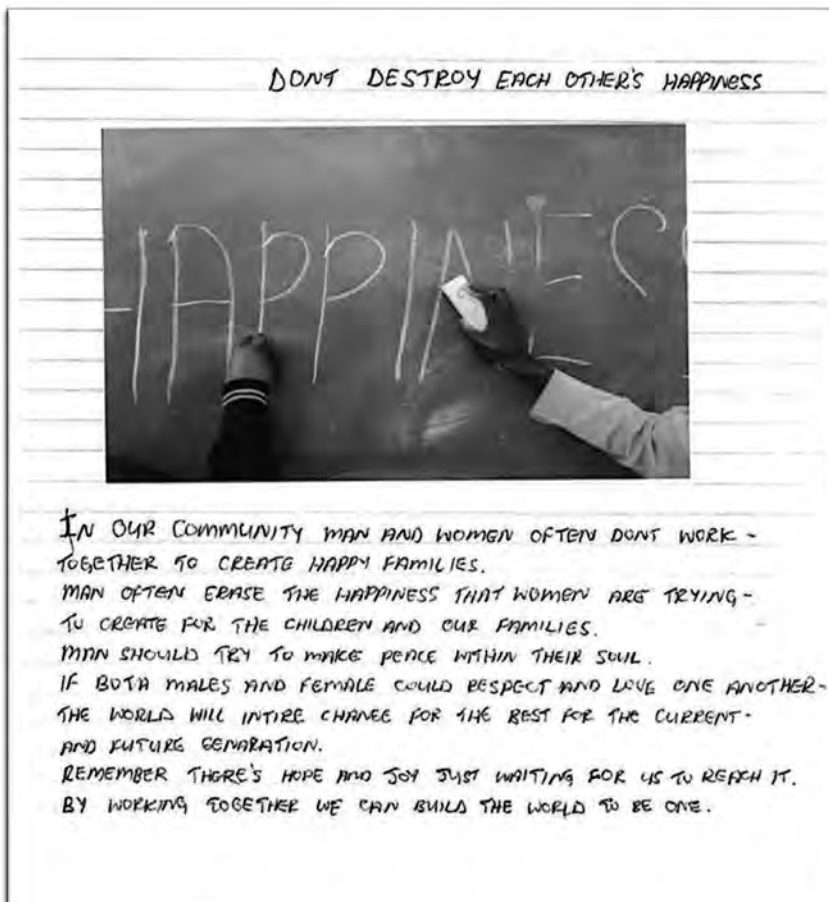 DONT DESTROY EACH OTHER'S HAPPINESS
HAPPINESS
IN OUR COMMUNITY MAN AND WOMEN OFTEN DONT WORK -
TOGETHER TO CREATE HAPPY FAMILIES.
MAN OFTEN ERASE THE HAPPINESS THAT WOMEN ARE TRYING -
TO CREATE FOR THE CHILDREN AND OUR FAMILIES.
MAN SHOULD TRY TO MAKE PEACE WITHIN THEIR SOUL.
IF BOTH MALES AND FEMALE COULD RESPECT AND LOVE ONE ANOTHER -
THE WORLD WILL INTIRE CHANGE FOR THE BEST FOR THE CURRENT -
AND FUTURE GENARATION.
REMEMBER THERE'S HOPE AND JOY JUST WAITING FOR US TO REACH IT.
BY WORKING TOGETHER WE CAN BUILD THE WORLD TO BE ONE.